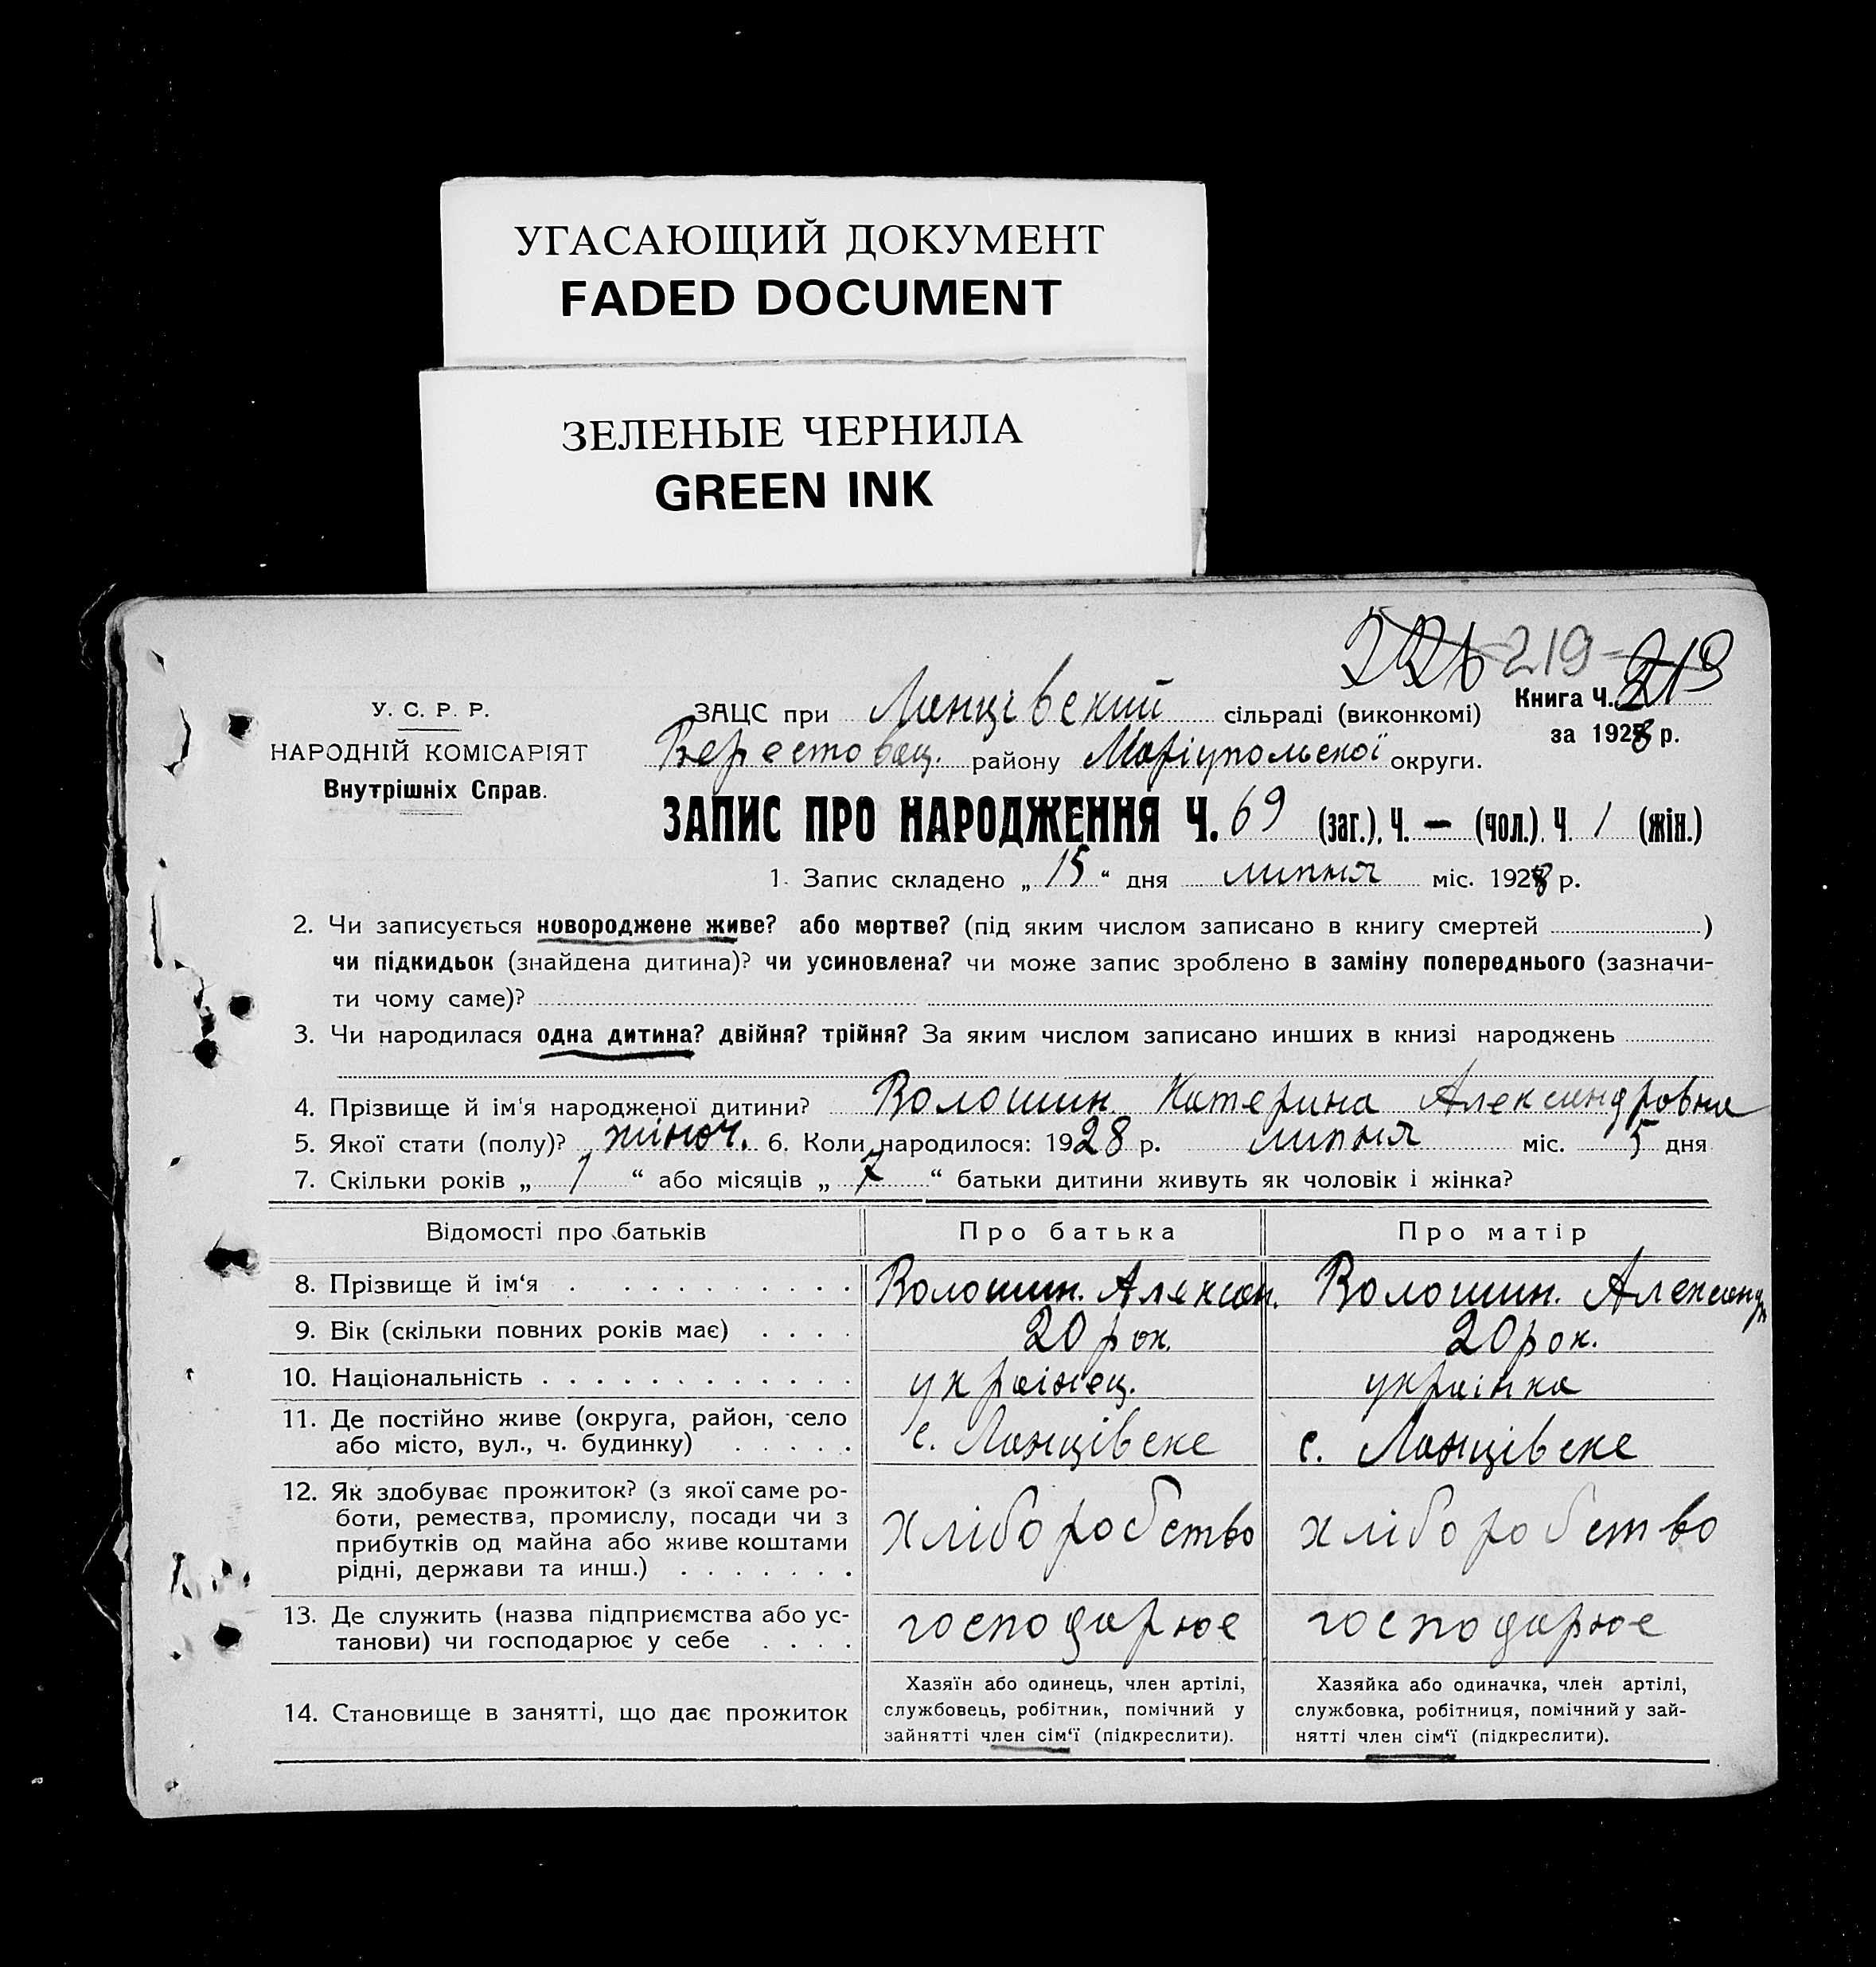 УГАСАЮЩИЙ ДОКУМЕНТ
FADED DOCUMENT
ЗЕЛЕНЫЕ ЧЕРНИЛА
GREEN INK
219
213
У. С. Р. Р.
НАРОДНІЙ КОМІСАРІЯТ
Внутрішніх Справ.
ЗАЦС при Ланцівский сільраді (виконкомі)
Книга Ч.
за 1928 р.
Берестовец. району Маріупольскої округи.
ЗАПИС ПРО НАРОДЖЕННЯ Ч. 69 (заг.), Ч. — (чол.), Ч. 1 (жін.)
1. Запис складено „ 15 “ дня липня міс. 1928 р.
2. Чи записується новороджене живе? або мертве? (під яким числом записано в книгу смертей )
чи підкидьок (знайдена дитина)? чи усиновлена? чи може запис зроблено в заміну попереднього (зазначи-
ти чому саме)?
3. Чи народилася одна дитина? двійня? трійня? За яким числом записано инших в книзі народжень
4. Прізвище й ім‘я народженої дитини? Волошин Катерина Александровна
5. Якої стати (полу)? жіноч. 6. Коли народилося: 1928 р. липня міс. 5 дня
7. Скільки років „ 1 “ або місяців „ 7 “ батьки дитини живуть як чоловік і жінка?
Відомості про батьків Про батька Про матір
8. Прізвище й ім‘я Волошин. Алексан. Волошин. Александ
9. Вік (скільки повних років має) 20 рок. 20 рок.
10. Національність украінец. украінка
11. Де постійно живе (округа, район, село
або місто, вул., ч. будинку)
с. Ланцівске с. Ланцівске
12. Як здобуває прожиток? (з якої саме ро-
боти, ремества, промислу, посади чи з
прибутків од майна або живе коштами
рідні, держави та инш.)
хліборобство хліборобство
13. Де служить (назва підприємства або ус-
танови) чи господарює у себе
господарює господарює
14. Становище в занятті, що дає прожиток
Хазяїн або одинець, член артілі,
службовець, робітник, помічний у
зайнятті член сім‘ї (підкреслити).
Хазяйка або одиначка, член артілі,
службовка, робітниця, помічний у зай-
нятті член сім‘ї (підкреслити).